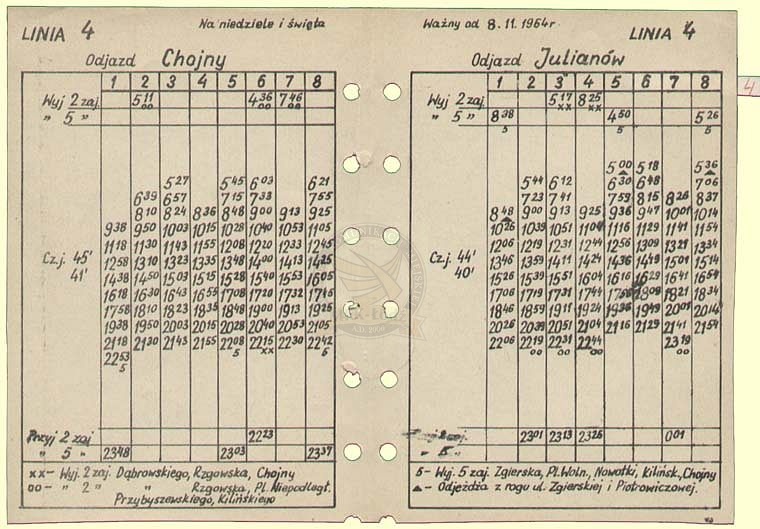 LINIA 4
Na niedziele i święta
Odjazd Chojny
1 2 3 4 5 6 7 8
Wyj 2 zaj. 5 11 oo 4 36 oo 7 46 oo
" 5 "
5 27 5 45 6 03 6 21
6 39 6 57 7 15 7 33 7 55
8 10 8 24 8 36 8 48 9 00 9 13 9 25
9 38 9 50 10 03 10 15 10 28 10 40 10 53 11 05
11 18 11 30 11 43 11 55 12 08 12 20 12 33 12 45
Cz.j. 45' 12 58 13 10 13 23 13 35 13 48 14 00 14 13 14 25
41' 14 38 14 50 15 03 15 15 15 28 15 40 15 53 16 05
16 18 16 30 16 43 16 55 17 08 17 20 17 32 17 45
17 58 18 10 18 23 18 35 18 48 19 00 19 13 19 25
19 38 19 50 20 03 20 15 20 28 20 40 20 53 21 05
21 18 21 30 21 43 21 55 22 08 5 22 15 xx 22 30 22 42 5
22 53 5
Przyj 2 zaj 22 23
" 5 " 23 48 23 03 23 37
xx - Wyj. 2 zaj. Dąbrowskiego, Rzgowska, Chojny
oo - " 2 " " Rzgowska, Pl. Niepodległ.
Przybyszewskiego, Kilińskiego
Ważny od 8.11.1964r
LINIA 4
Odjazd Julianów
1 2 3 4 5 6 7 8
Wyj 2 zaj. 5 17 xx 8 25 xx
" 5 " 8 38 5 4 50 5 5 26 5
5 00 ▲ 5 18 5 36 ▲
5 44 6 12 6 30 6 48 7 06
7 23 7 41 7 59 8 15 8 26 8 37
8 48 ▲ 9 00 9 13 9 25 9 36 9 47 10 01 10 14
10 26 10 39 10 51 11 04 11 16 11 29 11 41 11 54
12 06 12 19 12 31 12 44 12 56 13 09 13 21 13 34
Cz.j. 44' 13 46 13 59 14 11 14 24 14 36 14 49 15 01 15 14
40' 15 26 15 39 15 51 16 04 16 16 16 29 16 41 16 54
17 06 17 19 17 31 17 44 18 09 18 21 18 34
18 46 18 59 19 11 19 24 19 36 19 49 20 01 20 14
20 26 20 39 20 51 21 04 21 16 21 29 21 41 21 54
22 06 22 19 oo 22 31 oo 22 44 oo 23 19 oo
2 zaj. 23 01 23 13 23 26 0 01
" 5 "
5 - Wyj. 5 zaj. Zgierska, Pl. Woln., Nowotki, Kilińsk., Chojny
▲ - Odjeżdża z rogu ul. Zgierskiej i Piotrowiczowej.
4